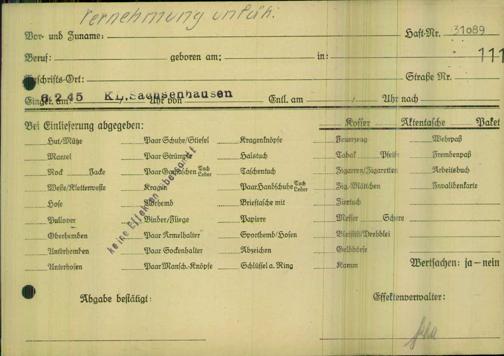 Vernehmung unfäh.
Vor- und Zuname: Haft-Nr. 31089
Beruf: geboren am: in: 111
Anschrifts-Ort: Straße Nr.
Eingel. am 6.2.45 Uhr von KL.Sachsenhausen Entl. am Uhr nach
Bei Einlieferung abgegeben: Koffer Aktentasche Paket
Hut/Mütze Paar Schuhe/Stiefel Kragenknöpfe Feuerzeug Wehrpaß
Mantel Paar Strümpfe Halstuch Tabak Pfeife Fremdenpaß
Rock Jacke Paar Gamaschen Tuch Leder Taschentuch Zigarren/Zigaretten Arbeitsbuch
Weste/Kletterweste Kragen Paar Handschuhe Tuch Leder Zig.-Blättchen Invalidenkarte
Hose Vorhemd Brieftasche mit Ziertuch
Pullover Binder/Fliege Papiere Messer Schere
Oberhemden Paar Ärmelhalter Sporthemd/Hosen Bleistift/Drehblei
Unterhemden Paar Sockenhalter Abzeichen Geldbörse
Unterhosen Paar Mansch.-Knöpfe Schlüssel a. Ring Kamm Wertsachen: ja – nein
keine Effekten überbracht
Abgabe bestätigt: Effektenverwalter: